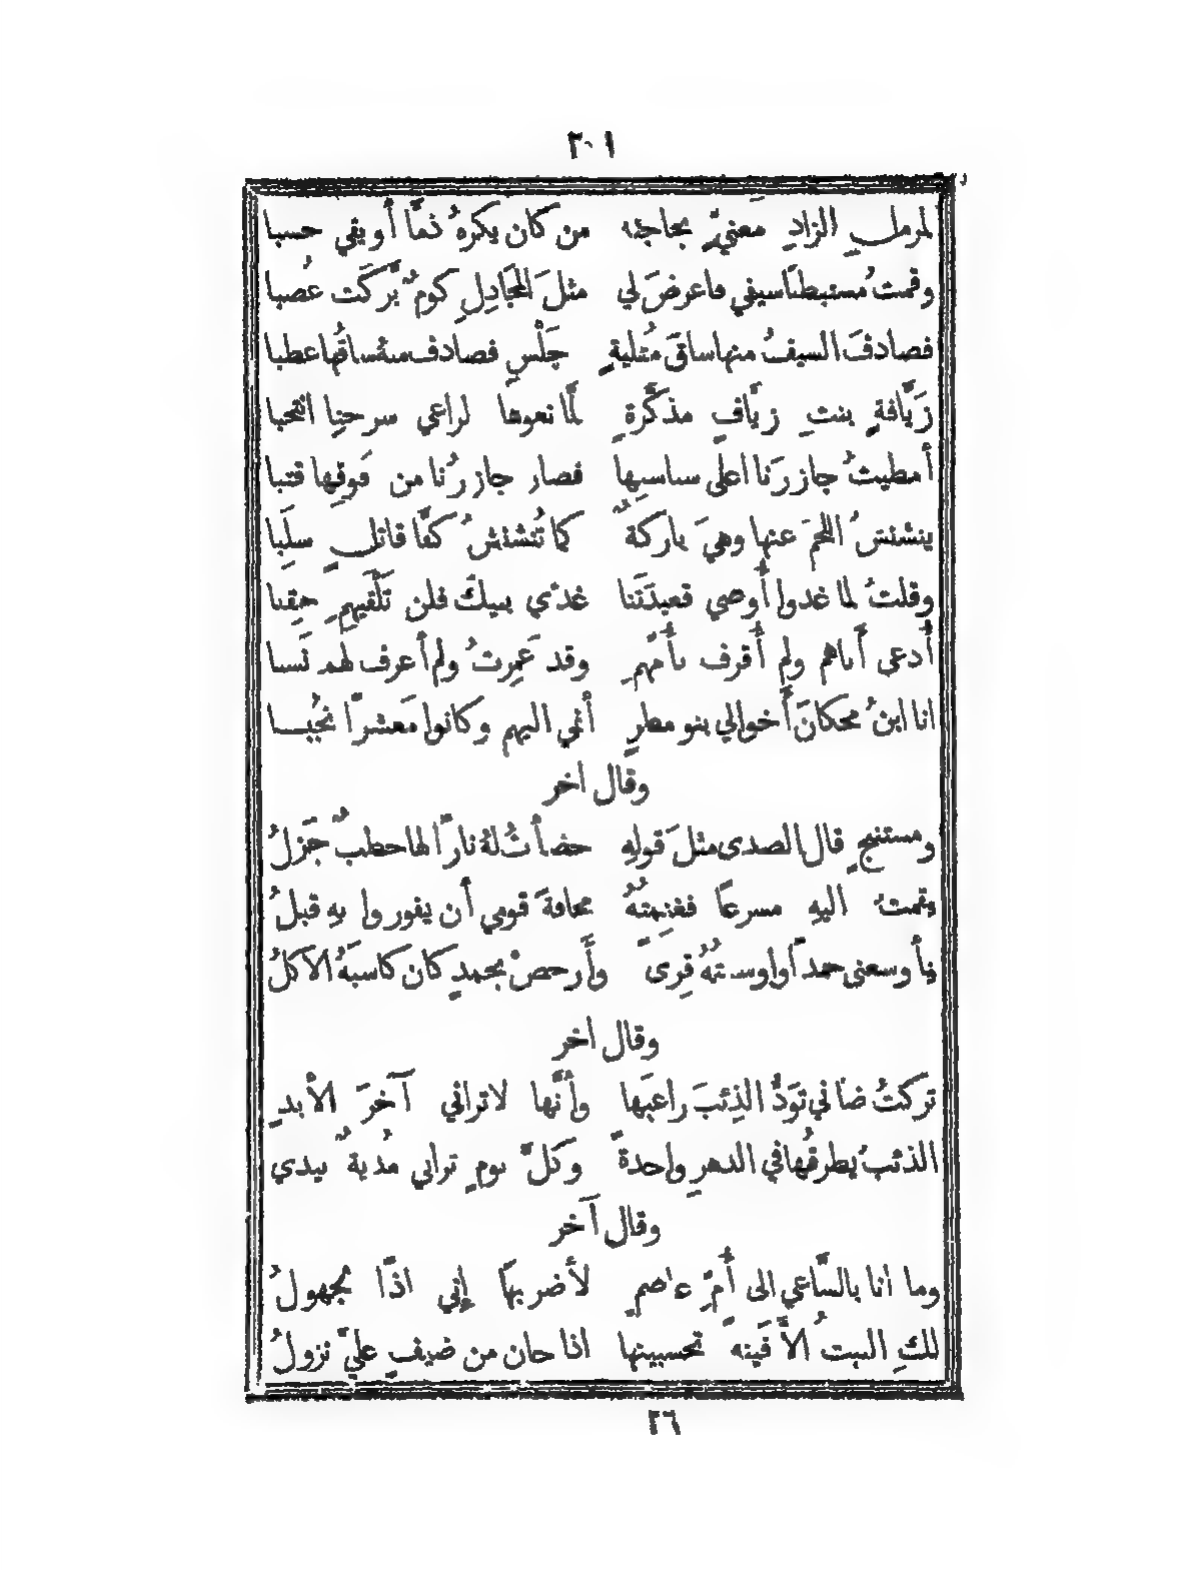 ٢٠١
لمرملِ الزادِ مَعنيٍّ بحاجتِه من كان يكرهُ ذمًّا أو يقي حسبا
وقمتُ مستبطنًا سيفي فاعرضَ لي مثلَ المجَادِلِ كومٌ بَرَّكَت عُصبا
فصادفَ السيفُ منها ساقَ مُتليةٍ جَلْسٍ فصادف منهُ ساقُها عطبا
زَيَّافةٍ بنتِ زيَّافٍ مذكَّرةٍ لمَّا نعوها لراعي سرحنِا انتحبا
أمطيتُ جازرَنا اعلى سناسنِها فصار جازرُنا من فَوقِها قتبا
ينشنشُ اللحمَ عنها وهيَ باركةٌ كما تُنشنشُ كفَّا قاتلٍ سلَبا
وقلتُ لما غدوا أُوصي قعيدَتَنا غدّي بنيكِ فلن تَلْقَيهِمِ حِقبا
أُدعى أباهم ولم أُقرف بأُمّهمِ وقد عَمِرتُ ولم أعرف لهم نَسبا
انا ابنُ محكانَ أَخوالي بنو مطرٍ أنمي اليهم وكانوا مَعشرًا نجُبا
وقال آخر
ومستنبحٍ قال الصدى مثلَ قولهِ حضأتُ لهُ نارًا لها حطبٌ جَزلُ
وقمتُ اليهِ مسرعًا فغنِمتُهُ مخافةَ قومي أن يفوروا بهِ قبلُ
فأوسعني حمدًا واوسعتُهُ قِرىً وأَرخصْ بحمدٍ كان كاسبَهُ الأكلُ
وقال آخر
تركتُ ضاني تَوَدُّ الذِئبَ راعيَها وأنَّها لا تراني آخرَ الأبدِ
الذئبُ يطرقُها في الدهرِ واحدةً وكلَّ يومٍ تراني مُديةٌ بيدي
وقال آخر
وما انا بالسَّاعي الى أُمِّ عاصمٍ لأضربَها إني اذًا لجهولُ
لكِ البيتُ الاَّ فَينةً تحسبينها اذا حان من ضيفٍ عليَّ نزولُ
٢٦